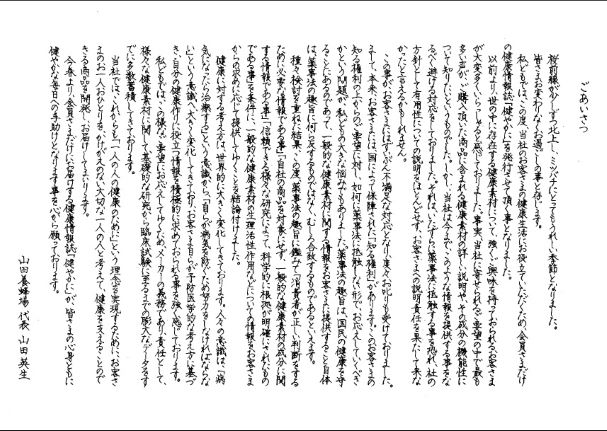 ごあいさつ
桜前線が少しずつ北上し、ミツバチにとってもうれしい季節となりました。
皆さまお変わりなくお過しの事と存じます。
私どもでは、この度、当社のお客さまの健康生活にお役立ていただくため、会員さまだけ
の健康情報誌「健やかに」を発行させて頂く事となりました。
以前より、世の中に存在する健康素材について、強くご興味を持っておられるお客さま
が大変多くいらっしゃると感じておりました。事実、当社に寄せられるご要望の中で最も
多い声が、ご購入頂いた商品に含まれる健康素材の詳しい説明や、その成分の機能性に
ついて知りたいというものでした。しかし、当社は今までこのような情報を提供する事をな
るべく避ける対応をしておりました。それは、いたずらに薬事法に抵触する事を恐れ、社の
方針として有用性についての説明をほとんどせず、お客さまへの説明責任を果たして来な
かったと言えるかもしれません。
この事が、お客さまにはずいぶん不満足な対応となり、度々お叱りも受けておりました。
まして、本来、お客さまには、国によって保障された「知る権利」があります。このお客さまの
知る権利の上からのご要望に対し、如何に薬事法に抵触しない形でお応えしていくべき
かという問題が、私どもの大きな悩みでもありました。薬事法の趣旨は、国民の健康を守
ることにあるのであって、一般的な健康素材に関する情報をお客さまに提供すること自体
は、薬事法の趣旨に何ら反するものではなく、むしろ合致するものであるといえます。
種々検討を重ねた結果、この度、薬事法の趣旨に鑑みて「消費者が正しく判断する
ために必要な情報である事」「自社の商品を対象にせず、一般的な健康素材の成分に関
する情報である事」「信頼できる様々な研究によって、科学的に根拠が明確にされたもの
である事」を要件に、一般的な健康素材の生理活性作用などについての情報をお客さま
からの求めに応じて提供してゆくことを結論付けました。
健康に対する考え方は、世界的に大きく変化してきております。人々の意識は、「病
気になったら治療する」という意識から、「自らが病気を防ぐため努力をしなければならな
い」という意識へ大きく変化してきており、お客さま自らが予防医学的な考え方に基づ
き、自分の健康作りに役立つ情報を積極的に求めておられる事を強く感じております。
私どもでは、この様なご要望にお応えしてゆくため、メーカーの義務であり責任として、
様々な健康素材に関して基礎的な研究から臨床試験に至るまでの膨大なデータをす
でに多数蓄積してきております。
当社では、これからも「一人の人の健康のために」という理念を実現するために、お客さ
まのお一人おひとりを、かけがえのない大切な一人の人と考えて、健康を支えることので
きる商品を開発し、お届けしてまいります。
今春より、会員さまだけにお届けする健康情報誌「健やかに」が、皆さまの心身ともに
健やかな毎日への手助けとなります事を心から願っております。
山田養蜂場 代表 山田英生